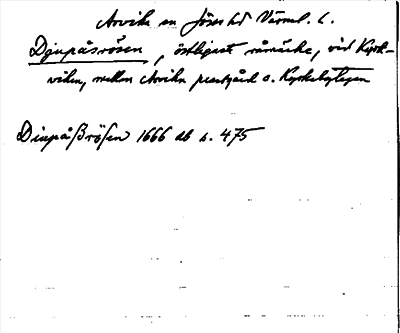 Arvika sn Jösse hd Värml. l.
Djupåsrösen, östligaste råmärke, vid Kyrk-
viken, mellan Arvika prestgård o. Kyrkebytegen
Diupåßrößen 1666 ab s. 475